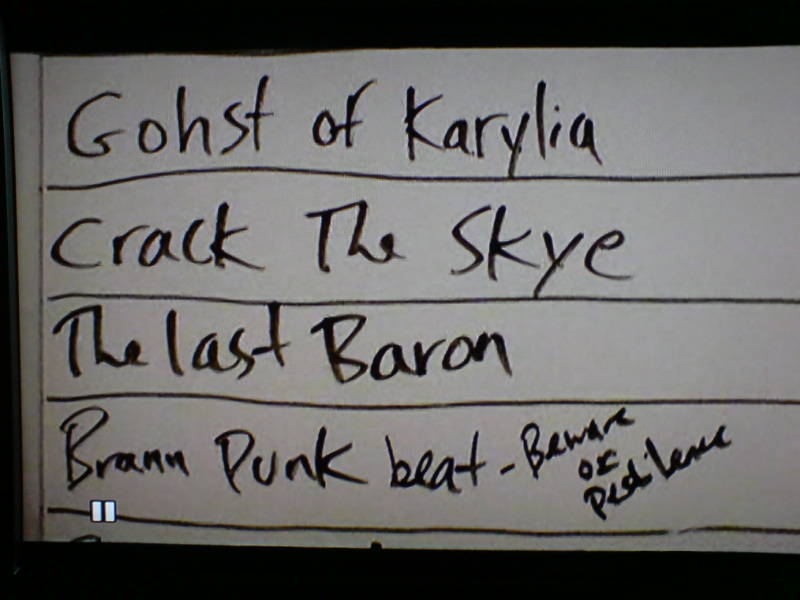 Gohst of Karylia
Crack The Skye
The last Baron
Brann Punk beat - Beware
of
Pestilence